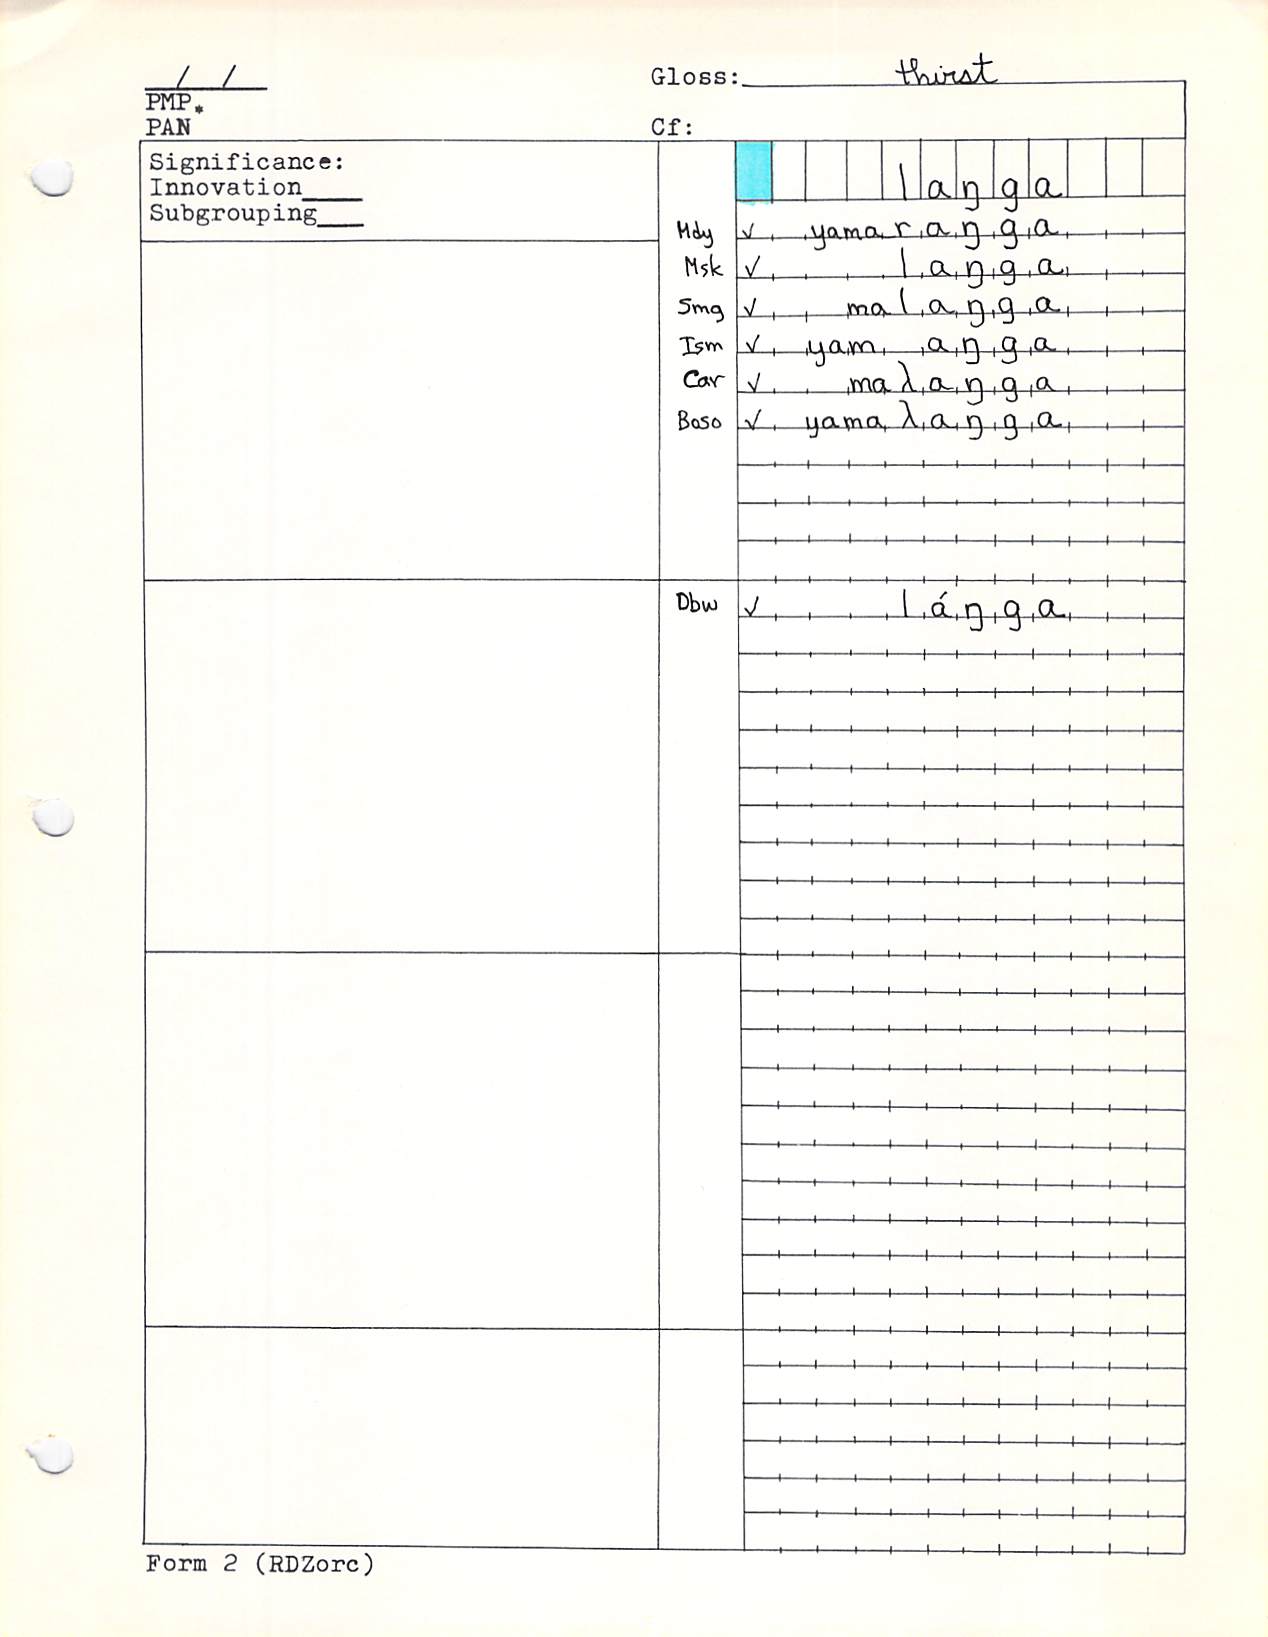 / /
Gloss: thirst
PMP*
PAN
Cf:
Significance:
Innovation
Subgrouping
laŋga
Mdy ✓ yamaraŋga
Msk ✓ laŋga
Smg ✓ malaŋga
Ism ✓ yam aŋga
Car ✓ maλaŋga
Boso ✓ yamaλaŋga
Dbw ✓ láŋga
Form 2 (RDZorc)